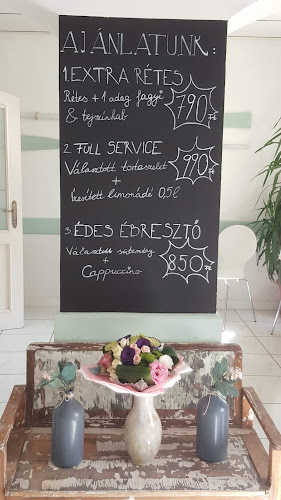 AJÁNLATUNK:
1. EXTRA RÉTES
Rétes + 1 adag fagyi
& tejszínhab
790 Ft
2. FULL SERVICE
Választott tortaszelet
+
Ízesített limonádé 0,5l
990 Ft
3. ÉDES ÉBRESZTŐ
Választott sütemény
+
Cappuccino
850 Ft